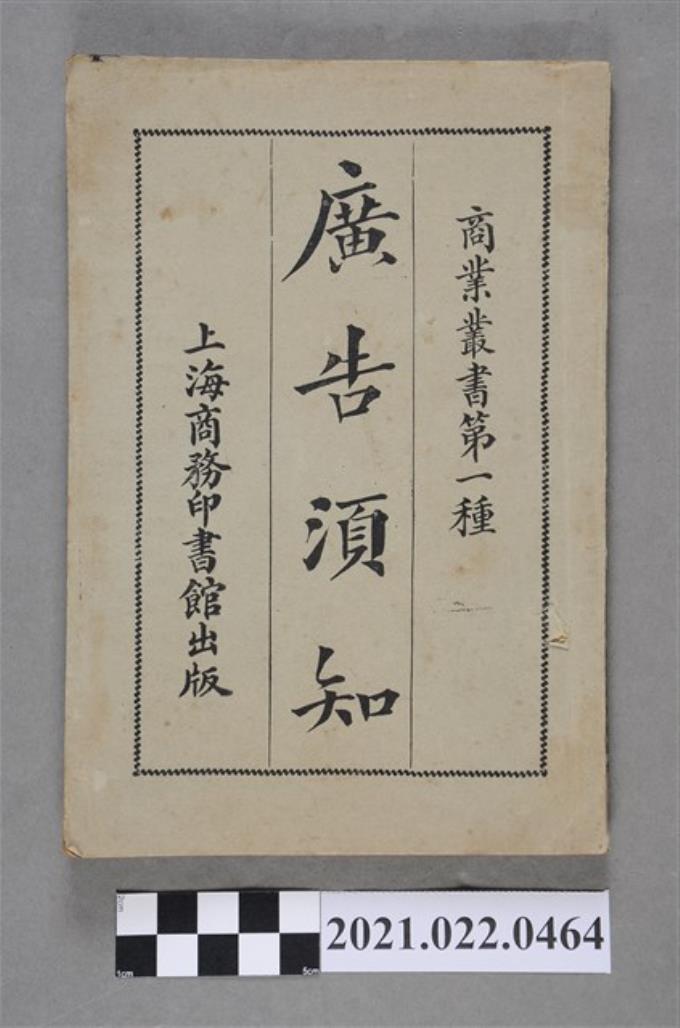 商業叢書第一種
廣告須知
上海商務印書館出版
2cm
1cm
5cm
2021.022.0464